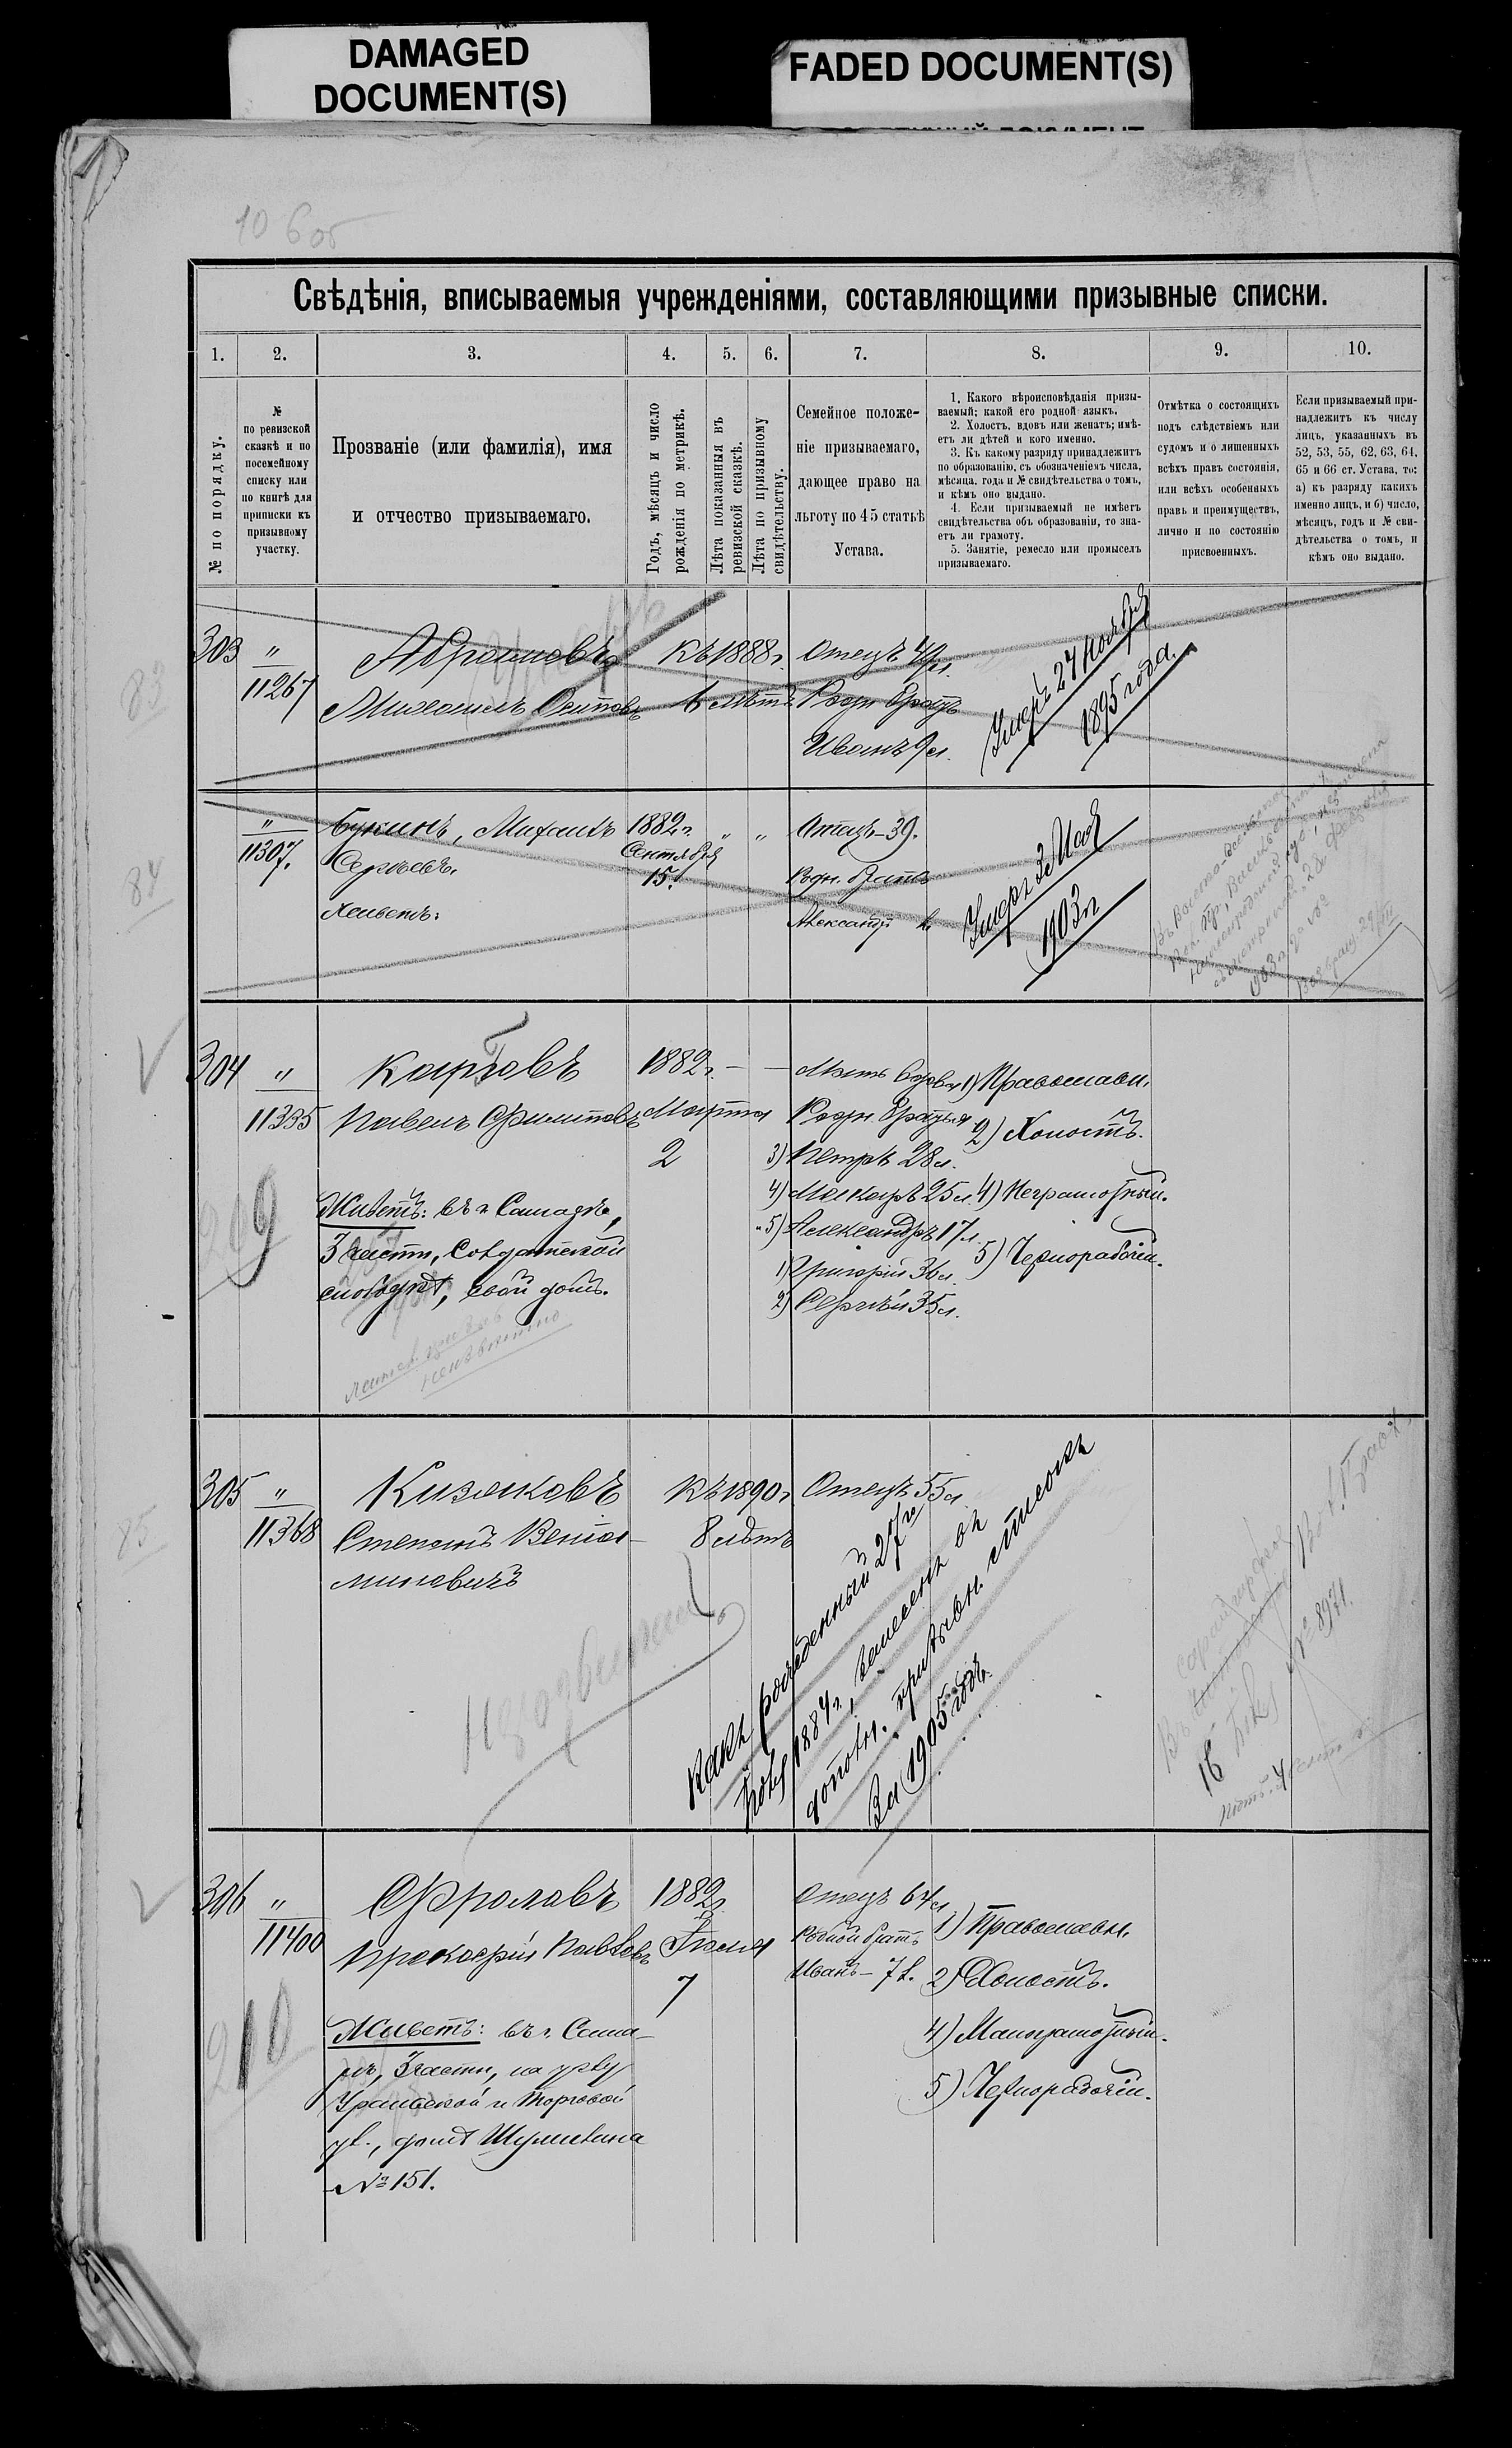 DAMAGED
DOCUMENT(S)
FADED DOCUMENT(S)
10 б об
Свѣдѣнія, вписываемыя учрежденіями, составляющими призывные списки.
1. 2. 3. 4. 5. 6. 7. 8. 9. 10.
№ по порядку.
№
по ревизской
сказкѣ и по
посемейному
списку или
по книгѣ для
приписки къ
призывному
участку.
Прозваніе (или фамилія), имя
и отчество призываемаго.
Годъ, мѣсяцъ и число
рожденія по метрикѣ.
Лѣта показанныя въ
ревизской сказкѣ.
Лѣта по призывному
свидѣтельству.
Семейное положе-
ніе призываемаго,
дающее право на
льготу по 45 статьѣ
Устава.
1. Какого вѣроисповѣданія призы-
ваемый; какой его родной языкъ.
2. Холостъ, вдовъ или женатъ; имѣ-
етъ ли дѣтей и кого именно.
3. Къ какому разряду принадлежитъ
по образованію, съ обозначеніемъ числа,
мѣсяца, года и № свидѣтельства о томъ,
и кѣмъ оно выдано.
4. Если призываемый не имѣетъ
свидѣтельства объ образованіи, то зна-
етъ ли грамоту.
5. Занятіе, ремесло или промыселъ
призываемаго.
Отмѣтка о состоящихъ
подъ слѣдствіемъ или
судомъ и о лишенныхъ
всѣхъ правъ состоянія,
или всѣхъ особенныхъ
правъ и преимуществъ,
лично и по состоянію
присвоенныхъ.
Если призываемый при-
надлежитъ къ числу
лицъ, указанныхъ въ
52, 53, 55, 62, 63, 64,
65 и 66 ст. Устава, то:
а) къ разряду какихъ
именно лицъ, и б) число,
мѣсяцъ, годъ и № сви-
дѣтельства о томъ, и
кѣмъ оно выдано.
303 „
11267
Абрамовъ
Михаилъ Осиповъ
Къ 1888 г.
6 лѣтъ
Отецъ 49 л.
Родн. братъ
Иванъ 9 л.
Умеръ 24 ноября
1895 года.
84
„
11307.
Букинъ, Михаилъ
Сергѣевъ.
Живетъ:
1882 г. „ „
Сентября
15.
Отецъ – 39.
Родн. братъ
Александръ
Умеръ 3 Мая
1903 г
304 „
11335
Карповъ
Павелъ Филиповъ
1882 г. – –
Марта
2
Живетъ: въ г. Самарѣ,
3 части, Солдатской
слободкѣ, свой домъ.
неизвѣстно
Мать вдова
Родн. братья
3) Петръ 28 л.
4) Макаръ 25 л.
5) Александръ 17 л.
1) Григорій 36 л.
2) Сергѣй 35 л.
1) Православн.
2) Холостъ.
4) Неграмотный.
5) Чернорабочій.
209
85
305 „
11368
Кизяковъ
Степанъ Веніа-
миновичъ
Къ 1890 г.
8 лѣтъ
Отецъ 55 л
Какъ рожденный 27го
Ноя 1884 г., занесенъ въ
дополн. призывн. списокъ
за 1905 годъ.
№ 8971.
306 „
11400
Фроловъ
Прокофій Павловъ
1882 г.
Іюля
7
Живетъ: въ г. Сама-
рѣ, 3 части, на углу
Уральской и Торговой
ул., домъ Шумилина
№ 151.
Отецъ 64 л
Родной братъ
Иванъ – 7 л.
1) Православн.
2) Холостъ.
4) Малограмотный.
5) Чернорабочій.
210